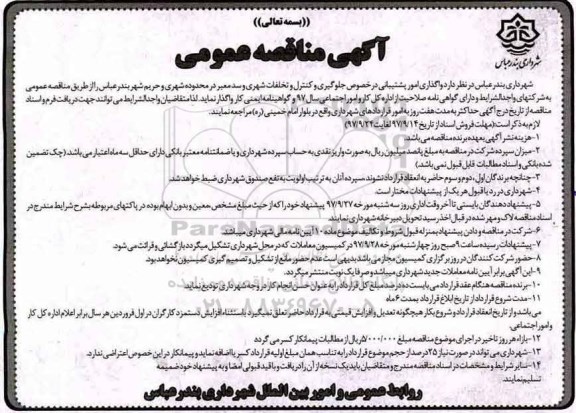 ((بسمه تعالی))
آگهی مناقصه عمومی
شهرداری بندرعباس
شهرداری بندرعباس در نظر دارد واگذاری امور پشتیبانی در خصوص جلوگیری و کنترل و تخلفات شهری و سد معبر در محدوده شهری و حریم شهر بندرعباس را از طریق مناقصه عمومی
به شرکتهای واجدالشرایط و دارای گواهی نامه صلاحیت از اداره کل کار و امور اجتماعی سال ۹۷ و گواهینامه ایمنی کار واگذار نماید. لذا متقاضیان واجدالشرایط می توانند جهت دریافت فرم و اسناد
مناقصه از تاریخ درج آگهی حداکثر به مدت هفت روز به امور قراردادهای شهرداری واقع در بلوار امام خمینی (ره) مراجعه نمایند.
لازم به ذکر است (مهلت فروش اسناد از تاریخ ۹۷/۹/۱۴ لغایت ۹۷/۹/۲۴)
۱-هزینه نشر آگهی به عهده برنده مناقصه می باشد.
۲-میزان سپرده شرکت در مناقصه به مبلغ پانصد میلیون ریال به صورت واریز نقدی به حساب سپرده شهرداری و یا ضمانتنامه معتبر بانکی دارای حداقل سه ماه اعتبار می باشد (چک تضمین
شده بانکی و اسناد مطالبات قابل قبول نمی باشد.)
۳-چنانچه برندگان اول، دوم و سوم حاضر به انعقاد قرارداد نشوند سپرده آنان به ترتیب اولویت به نفع صندوق شهرداری ضبط خواهد شد.
۴-شهرداری در رد یا قبول هر یک از پیشنهادات مختار است.
۵-پیشنهاددهندگان بایستی تا آخر وقت اداری روز سه شنبه مورخه ۹۷/۹/۲۷ پیشنهاد خود را که از حیث مبلغ مشخص، معین و بدون ابهام بوده در پاکتهای مربوطه بشرح شرایط مندرج در
اسناد مناقصه لاک و مهر شده در قبال اخذ رسید تحویل دبیرخانه شهرداری نمایند.
۶-شرکت در مناقصه و دادن پیشنهاد بمنزله قبول شروط و تکالیف موضوع ماده ۱۰ آیین نامه مالی شهرداری میباشد.
۷-پیشنهادات رسیده ساعت ۹ صبح روز چهارشنبه مورخه ۹۷/۹/۲۸ در کمیسیون معاملات که در محل شهرداری تشکیل میگردد بازگشائی و قرائت می شود.
۸-حضور شرکت کنندگان در روز برگزاری کمیسیون مجاز می باشد بدیهی است عدم حضور مانع از تشکیل و تصمیم گیری کمیسیون نخواهد بود.
۹-این آگهی برابر آیین نامه معاملات جدید شهرداری میباشد و صرفا یک نوبت منتشر میگردد.
۱۰-برنده مناقصه هنگام عقد قرارداد می بایست ده درصد مبلغ کل قرارداد را به عنوان حسن انجام کار در وجه شهرداری تودیع نماید.
۱۱-مدت شروع قرارداد از تاریخ ابلاغ قرارداد بمدت ۶ ماه
می باشد و از تاریخ انعقاد قرارداد و شروع بکار هیچگونه تعدیل و افزایش قیمتی به قرارداد حاضر تعلق نمیگیرد. باستثناء افزایش دستمزد کارگران در اول فروردین هر سال برابر اعلام اداره کل کار
و امور اجتماعی.
۱۲-بازاء هر روز تاخیر در اجرای موضوع مناقصه مبلغ ریال از مطالبات پیمانکار کسر می گردد
۱۳-شهرداری می تواند در صورت نیاز ۲۵ درصد از حجم موضوع قرارداد را به تناسب همان مبلغ اولیه قرارداد کسر یا اضافه نماید و پیمانکار در این خصوص اعتراضی ندارد.
۱۴-سایر شرایط و مشخصات در اسناد مناقصه مندرج و متقاضیان باید یک نسخه از آن را دریافت و با قید قبولی امضا و به پیشنهاد خود ضمیمه
تسلیم نمایند.
روابط عمومی و امور بین الملل شهرداری بندرعباس
ParsNamadData
۰۲۱-۸۸۳۴۹۶۷۰-۵